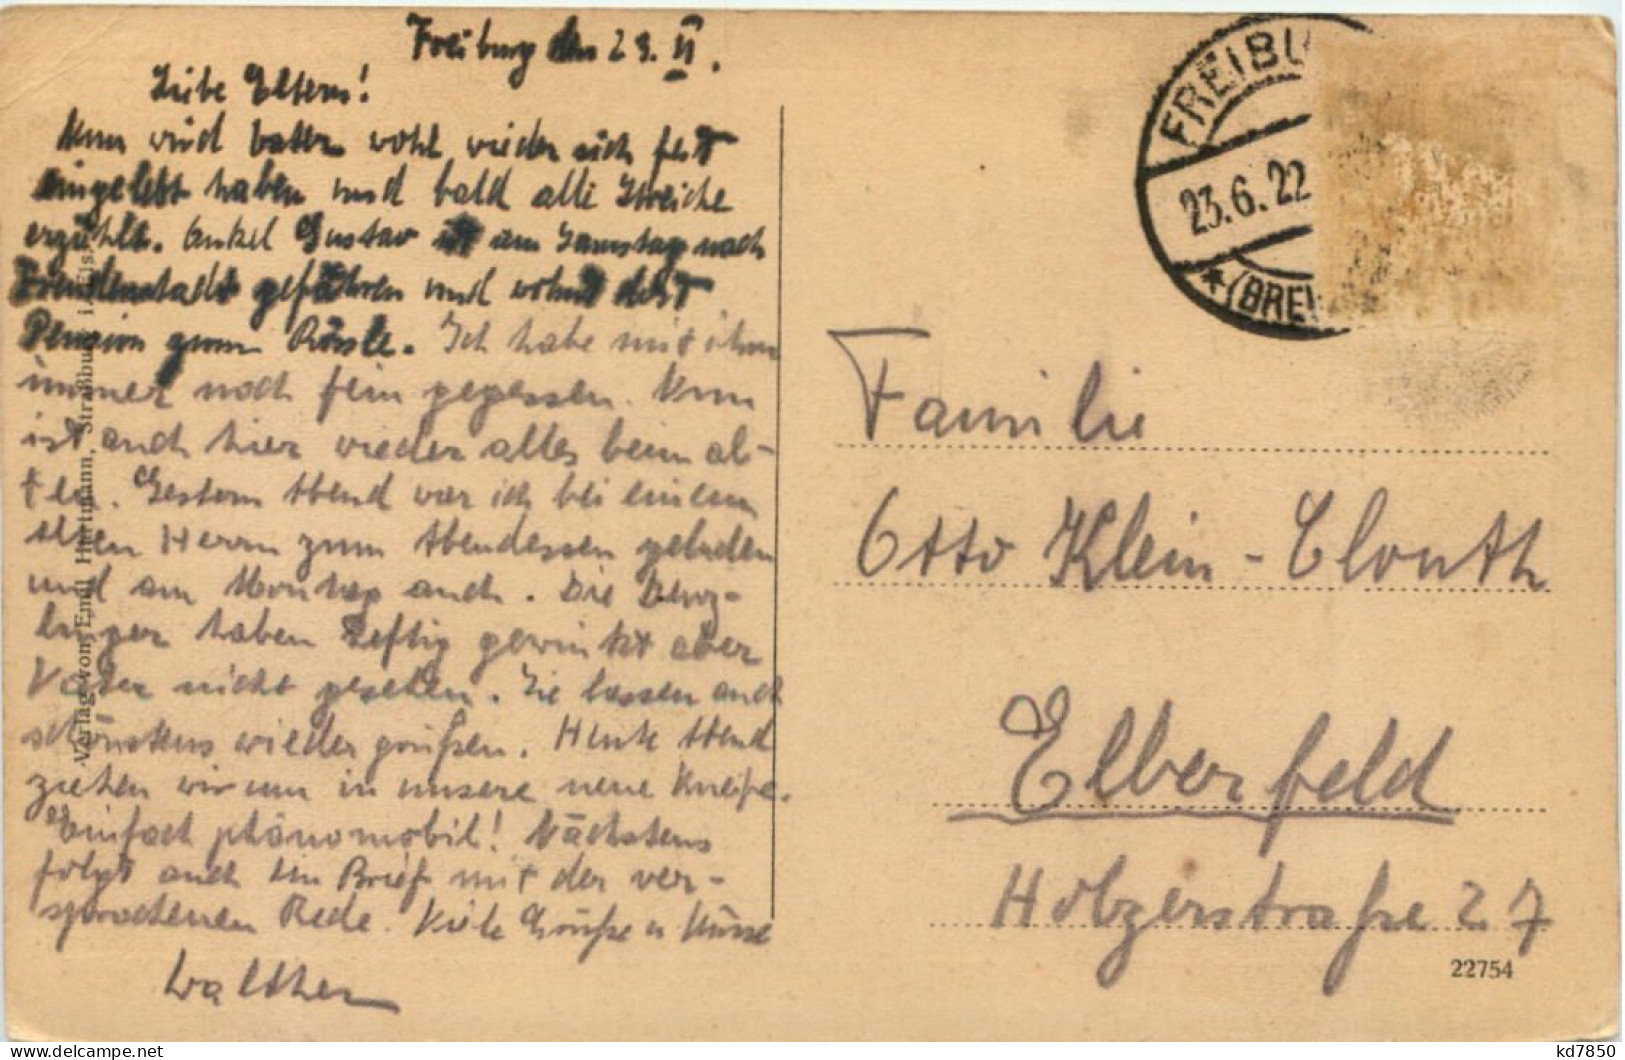 Freiburg den 23. VI.
Liebe Eltern!
Nun wird Vater wohl wieder sich fest
eingelebt haben und bald alle Streiche
erzählt. Onkel Gustav ist am Samstag nach
Freudenstadt gefahren und wohnt dort
Pension zum Rössle. Ich habe mit ihm
immer noch fein gegessen. Nun
ist auch hier wieder alles beim al-
ten. Gestern Abend war ich bei einem
alten Herrn zum Abendessen geladen
und am Montag auch. Die
haben heftig gewinkt aber
Vater nicht gesehen. Sie lassen auch
schönstens wieder grüßen. Heute Abend
ziehen wir um in unsere neue Kneipe.
Einfach phänomobil! Nächstens
folgt auch ein Brief mit der ver-
sprochenen Rede. Viele Grüße u Küsse
Walther
Verlag von Emil Hartmann, Straßburg i. Els.
FREIBU
23.6.22
*(BREI
Familie
Otto Klein-Clouth
Elberfeld
Holzerstraße 27
22754
kd7850